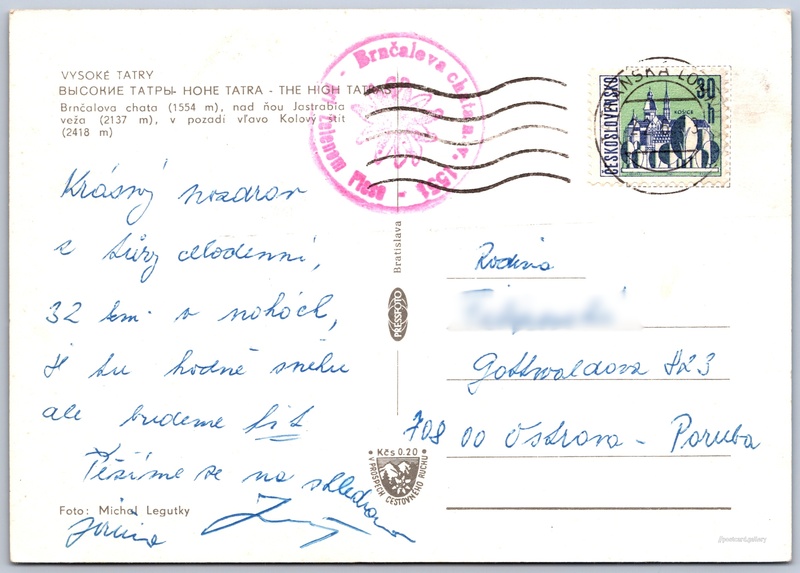 VYSOKÉ TATRY
ВЫСОКИЕ ТАТРЫ - HOHE TATRA - THE HIGH TATRAS
Brnčalova chata (1554 m), nad ňou Jastrabia
veža (2137 m), v pozadí vľavo Kolový štít
(2418 m)
Brnčalova chata n.v. 1551
Zelenom Plese
ČESKOSLOVENSKO
30 h
KOŠICE
NSKÁ LO
Krásný pozdrav
z túry celodenní,
32 km v nohách,
je tu hodně sněhu
ale budeme fit
Těšíme se na shledanou
Jiřina
Foto: Michal Legutky
Bratislava
PRESSFOTO
Kčs 0.20
V PROSPECH CESTOVNÉHO RUCHU
Rodina
Gottwaldova 823
708 00 Ostrava - Poruba
//postcard.gallery